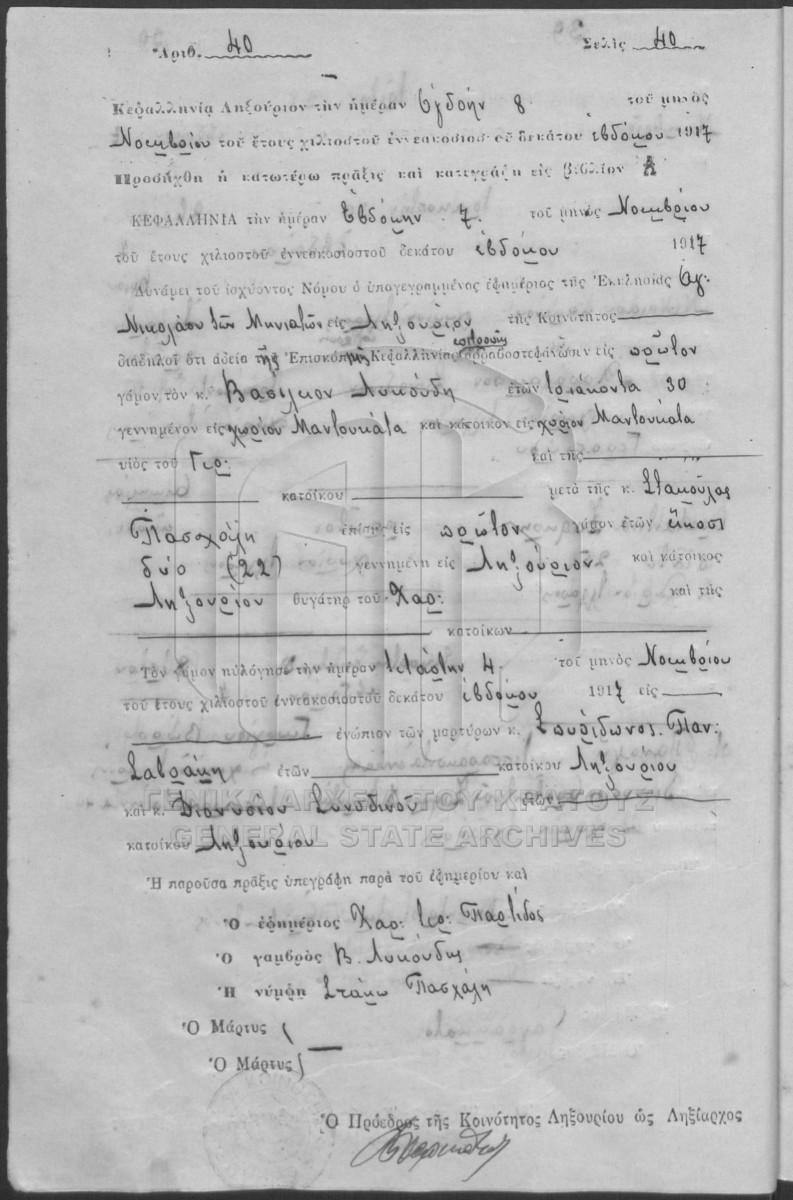 Ἀριθ. 40 Σελὶς 40
Κεφαλληνία Ληξούριον τὴν ἡμέραν Ὀγδόην 8 τοῦ μηνὸς
Νοεμβρίου τοῦ ἔτους χιλιοστοῦ ἐννεακοσιοστοῦ δεκάτου ἑβδόμου 1917
Προσήχθη ἡ κατωτέρω πρᾶξις καὶ κατεγράφη εἰς βιβλίον Α
ΚΕΦΑΛΛΗΝΙΑ τὴν ἡμέραν Ἑβδόμην 7. τοῦ μηνὸς Νοεμβρίου
τοῦ ἔτους χιλιοστοῦ ἐννεακοσιοστοῦ δεκάτου ἑβδόμου 1917
Δυνάμει τοῦ ἰσχύοντος Νόμου ὁ ὑπογεγραμμένος ἐφημέριος τῆς Ἐκκλησίας Ἁγ:
Νικολάου τῶν Μηνιατῶν εἰς Ληξούριον τῆς Κοινότητος
διαδηλοῖ ὅτι ἀδείᾳ τῆς Ἐπισκοπικῆς Κεφαλληνίας ἐπιτροπῆς ἀρραβοστεφάνωσεν εἰς πρῶτον
γάμον τὸν κ. Βασίλειον Λυκούδη ἐτῶν τριάκοντα 30
γεννημένον εἰς χωρίον Μαντουκάτα καὶ κάτοικον εἰς χωρίον Μαντουκάτα
υἱὸς τοῦ Γερ: καὶ τῆς
κατοίκου μετὰ τῆς κ. Στακούλας
Πασχάλη ἐπίσης εἰς πρῶτον γάμον ἐτῶν εἴκοσι
δύο (22) γεννημένη εἰς Ληξούριον καὶ κάτοικος
Ληξουρίου θυγάτηρ τοῦ Χαρ: καὶ τῆς
κατοίκων
Τὸν γάμον ηὐλόγησε τὴν ἡμέραν τετάρτην 4. τοῦ μηνὸς Νοεμβρίου
τοῦ ἔτους χιλιοστοῦ ἐννεακοσιοστοῦ δεκάτου ἑβδόμου 1917 εἰς
ἐνώπιον τῶν μαρτύρων κ. Σπυρίδωνος Παν:
Σαβράμη ἐτῶν κατοίκου Ληξουρίου
καὶ κ. Διονυσίου Συνοδινοῦ ἐτῶν
ΓΕΝΙΚΑ ΑΡΧΕΙΑ ΤΟΥ ΚΡΑΤΟΥΣ
GENERAL STATE ARCHIVES
κατοίκου Ληξουρίου
Ἡ παροῦσα πρᾶξις ὑπεγράφη παρὰ τοῦ ἐφημερίου καὶ
Ὁ ἐφημέριος Χαρ: ἱερ: Παρίδος
Ὁ γαμβρὸς Β. Λυκούδης
Ἡ νύμφη Στάκω Πασχάλη
Ὁ Μάρτυς
Ὁ Μάρτυς
Ὁ Πρόεδρος τῆς Κοινότητος Ληξουρίου ὡς Ληξίαρχος